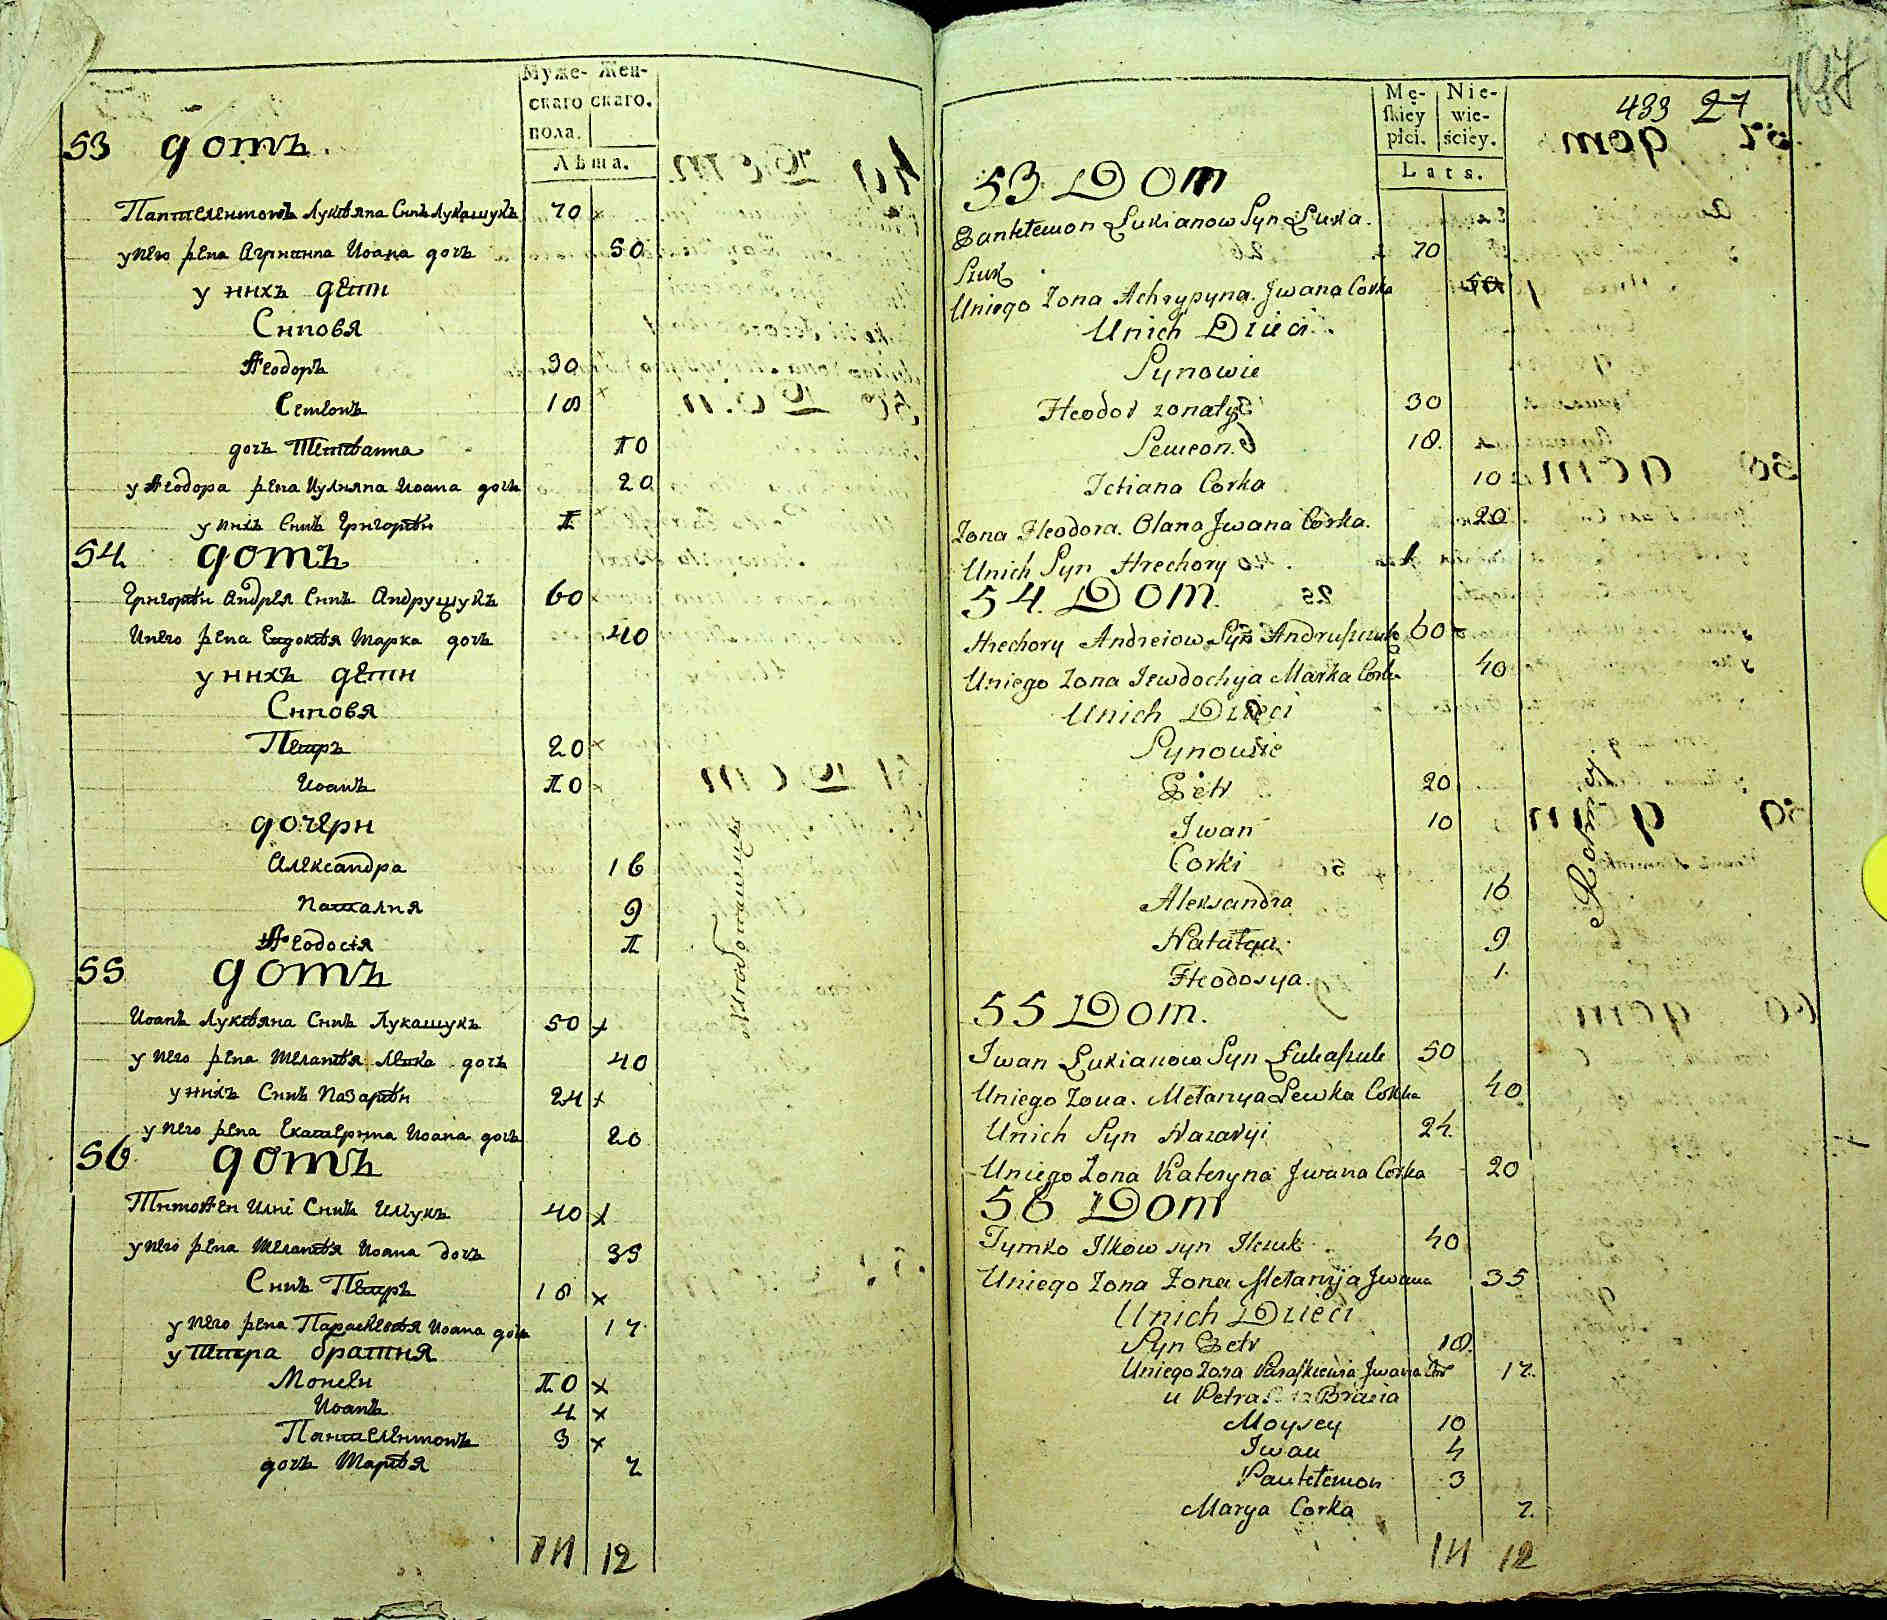 Муже- Жен-
скаго скаго.
пола.
Лѣта.
53 домъ.
Пантелеимонъ Лукіяна Синъ Лукашукъ 70 x
у него жена Агрипина Иоана дочъ 50
у нихъ дети
Синовя
Ѳеодоръ 30
Семеонъ 18 x
дочъ Тетіанна 10
у Ѳеодора жена Иулияна Иоана дочъ 20
у нихъ Синъ Григорій 1
54 домъ
Григорій Андрея Синъ Андрущукъ 60 x
Инего жена Евдокія Марка дочъ 40
у нихъ дети
Синовя
Петръ 20 x
Иоанъ 10 x
дочери
Александра 16
Наталия 9
Ѳеодосія 1
55 домъ
Иоанъ Лукіяна Синъ Лукашукъ 50 x
у него жена Меланія Левка дочъ 40
у нихъ Синъ Назарій 24 x
у него жена Екатерина Иоана дочъ 20
56 домъ
Тимоѳеи Илиі Синъ Илчукъ 40 x
у него жена Меланія Иоана дочъ 35
Синъ Петръ 18 x
у него жена Параскевія Иоана дочъ 17
у Петра братия
Моисеи 10 x
Иоанъ 4 x
Пантелеимонъ 3 x
дочъ Марія 7
14 12
Mę- Nie-
skiey wie-
płci. ściey.
Lata.
433 27
197
53 Dom
Pantełemon Łukianow Syn Łuka
szuk 70
Uniego Zona Achrypyna Jwana Corka 50
Unich Dzieci
Synowie
Fteodor zonaty 30
Semeon 18.
Tetiana Corka 10
Zona Fteodora. Olana Jwana Corka. 20
Unich Syn Hrechory 1
54. Dom.
Hrechory Andreiow Syn Andruszuk 60
Uniego Zona Jewdochyja Marka Corka 40
Unich Dzieci
Synowie
Petr 20
Jwan 10
Corki
Aleksandra 16
Natalya 9
Fteodosya. 1.
Rolnicy
55 Dom.
Jwan Łukianow Syn Łukaszuk 50
Uniego Zona. Mełanya Lewka Corka 40
Unich Syn Nazaryi 24.
Uniego Zona Kateryna Jwana Corka 20
56 Dom
Tymko Ilkow syn Ilczuk 40
Uniego Zona Zona Mełanyja Jwana 35
Unich Dzieci
Syn Petr 18.
Uniego Zona Paraskiewia Jwana Cor 17.
u Petra Bracia
Moysey 10
Jwan 4
Pantełemon 3
Marya Corka 7.
14 12